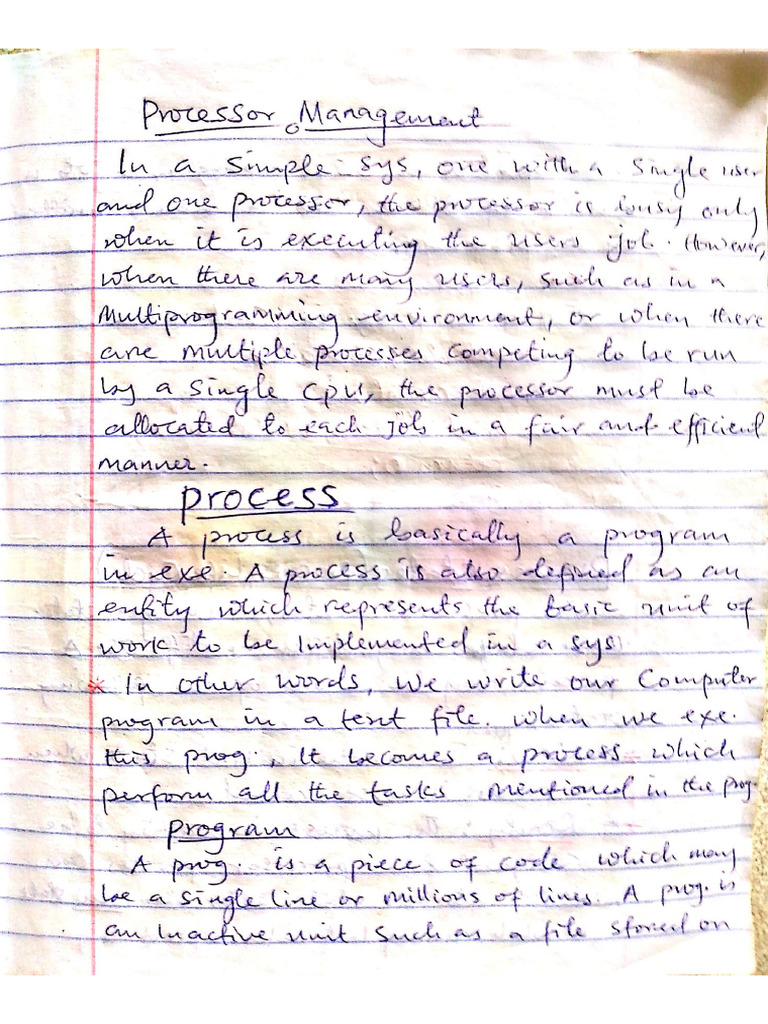 Processor Management
In a simple sys, one with a single user
and one processor, the processor is busy only
when it is executing the users job. However,
when there are many users, such as in a
Multiprogramming environment, or when there
are multiple processes competing to be run
by a single CPU, the processor must be
allocated to each job in a fair and efficient
manner.
process
A process is basically a program
in exe. A process is also defined as an
entity which represents the basic unit of
work to be Implemented in a sys
* In other words, we write our Computer
program in a text file. when we exe.
this prog., It becomes a process which
perform all the tasks mentioned in the prog.
program
A prog. is a piece of code which may
be a single line or millions of lines. A prog. is
an Inactive unit such as a file stored on